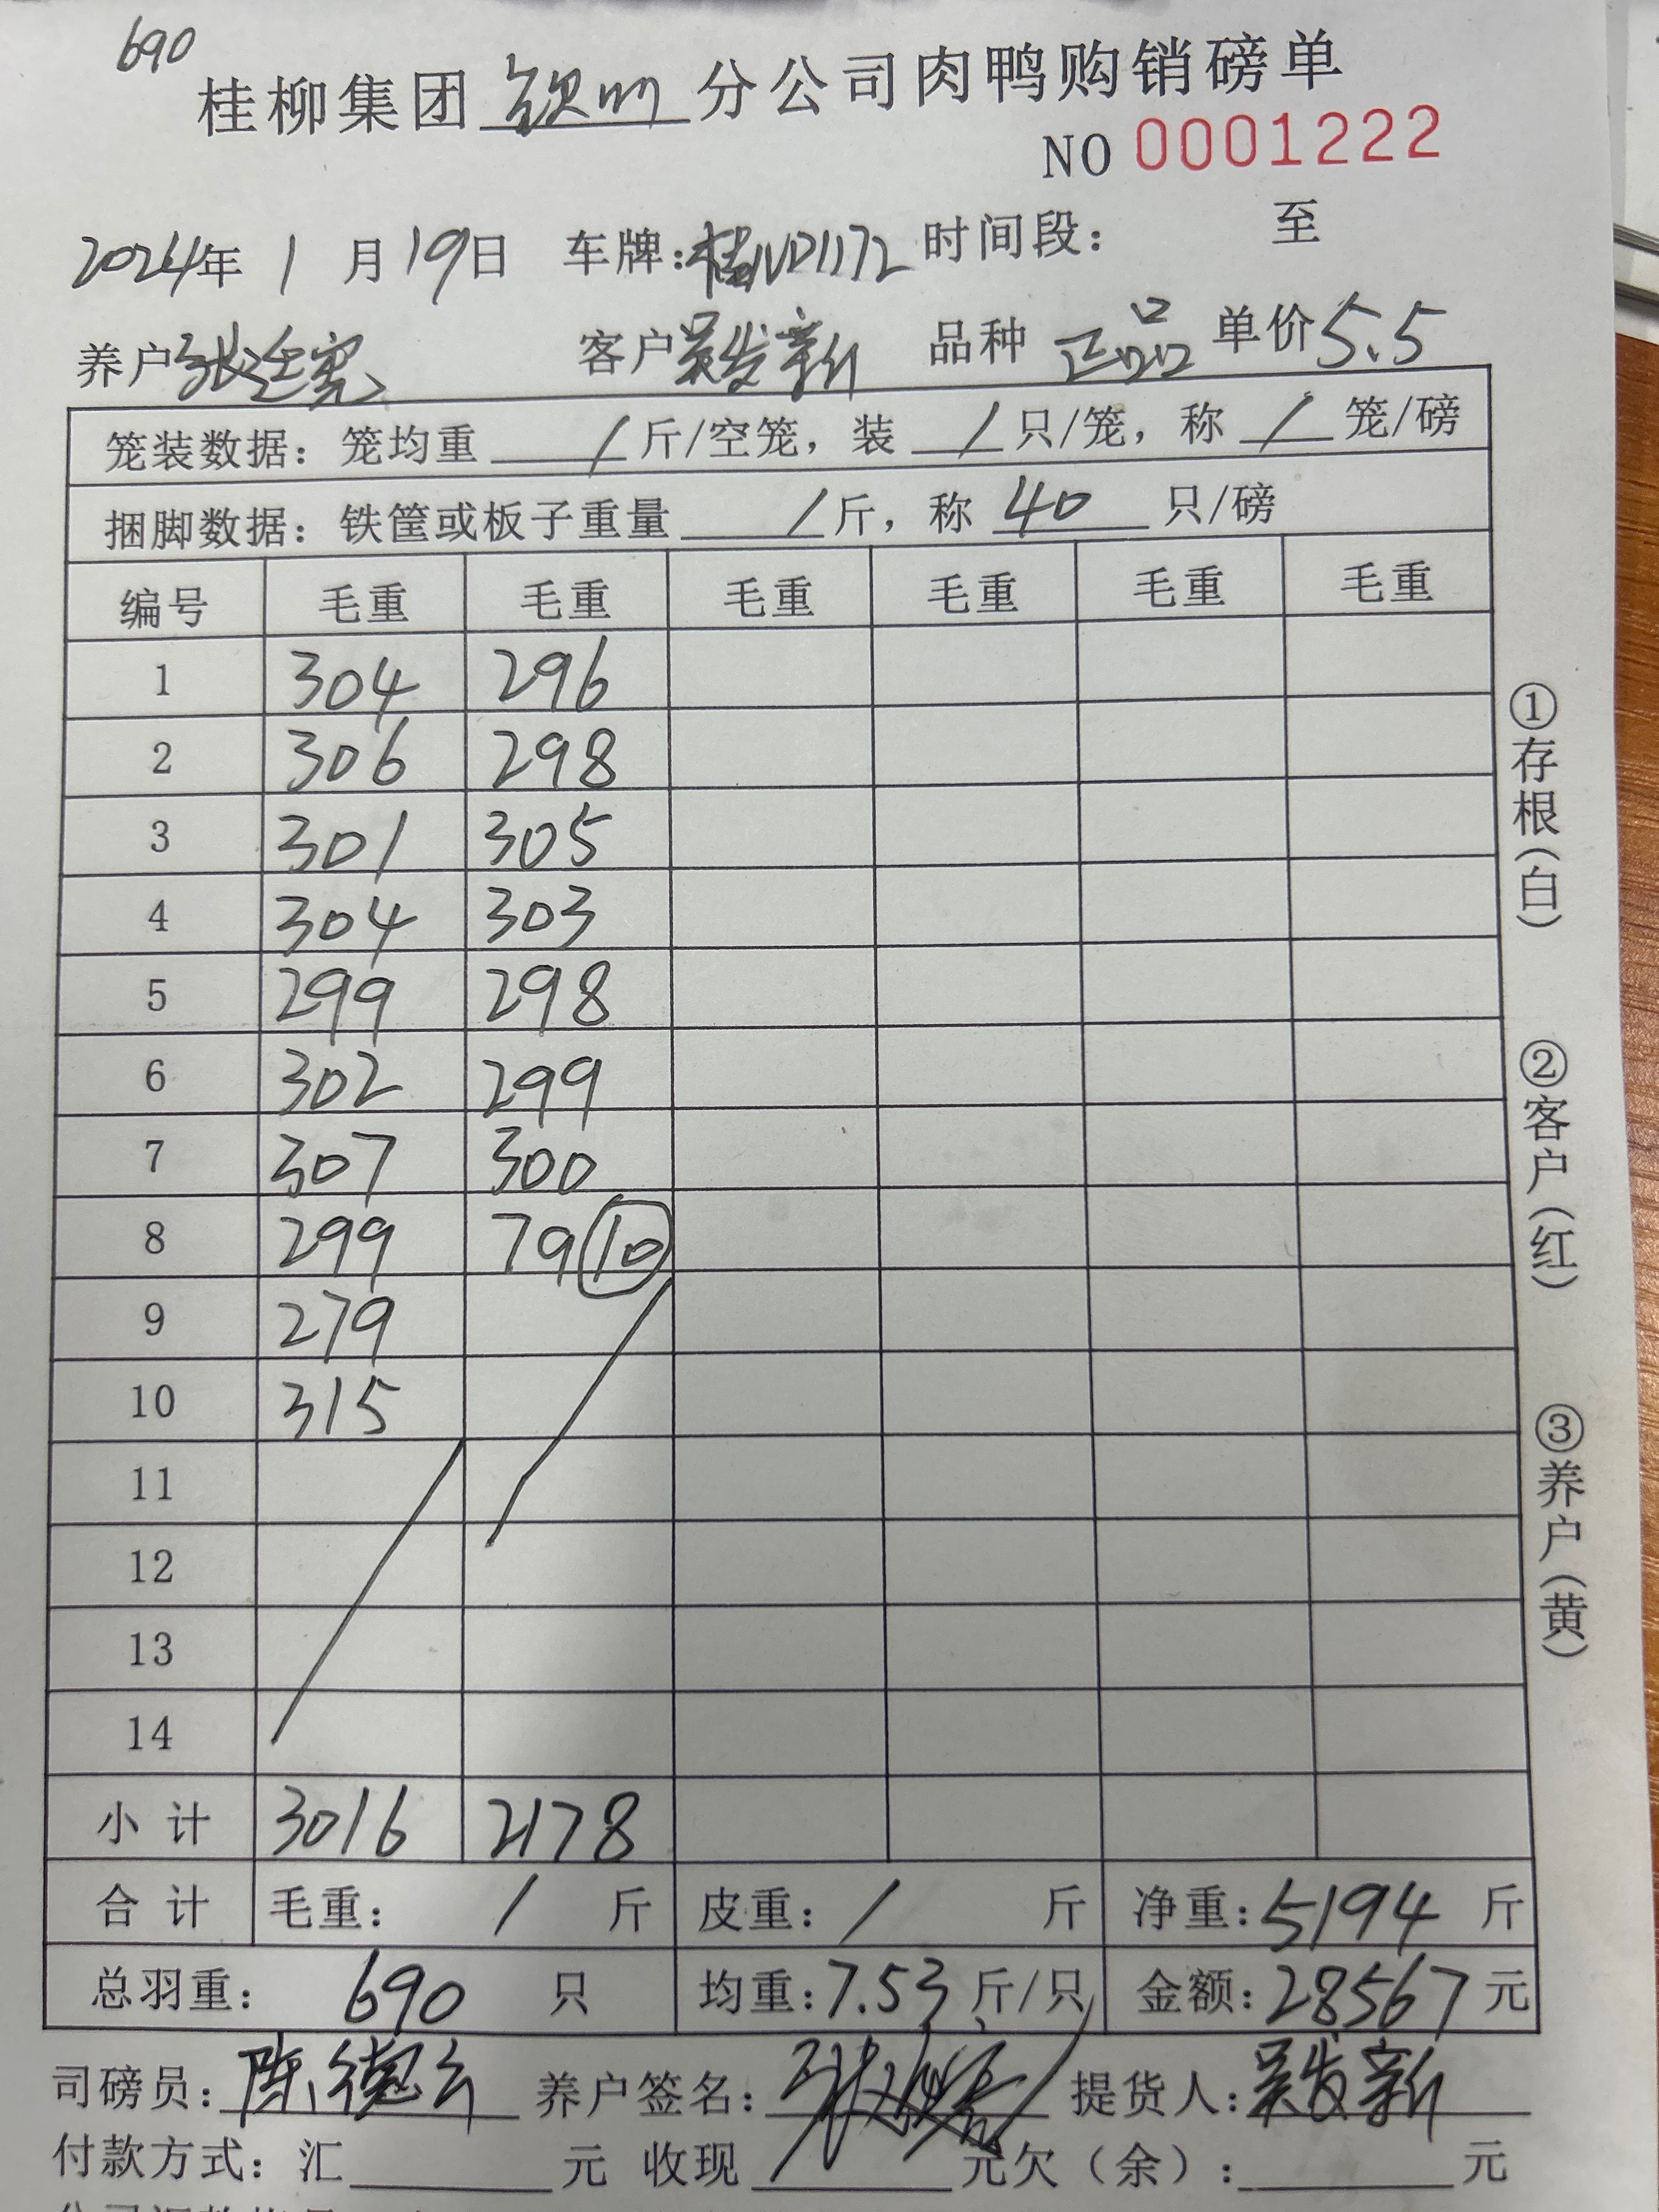 690
桂柳集团 钦州 分公司肉鸭购销磅单
NO 0001222
2024年 1 月 19日 车牌:桂ND1172 时间段: 至
养户 张廷宽 客户 吴发新 品种 正品 单价 5.5
笼装数据: 笼均重 / 斤/空笼, 装 / 只/笼, 称 / 笼/磅
捆脚数据: 铁筐或板子重量 / 斤, 称 40 只/磅
编号 毛重 毛重 毛重 毛重 毛重 毛重
1 304 296
2 306 298
3 301 305
4 304 303
5 299 298
6 302 299
7 307 300
8 299 79 ⑩
9 279
10 315
11
12
13
14
小计 3016 2178
合计 毛重: / 斤 皮重: / 斤 净重: 5194 斤
总羽重: 690 只 均重: 7.53 斤/只 金额: 28567 元
司磅员: 陈德云 养户签名: 提货人: 吴发新
付款方式: 汇 元 收现 元欠(余): 元
①存根(白)
②客户(红)
③养户(黄)